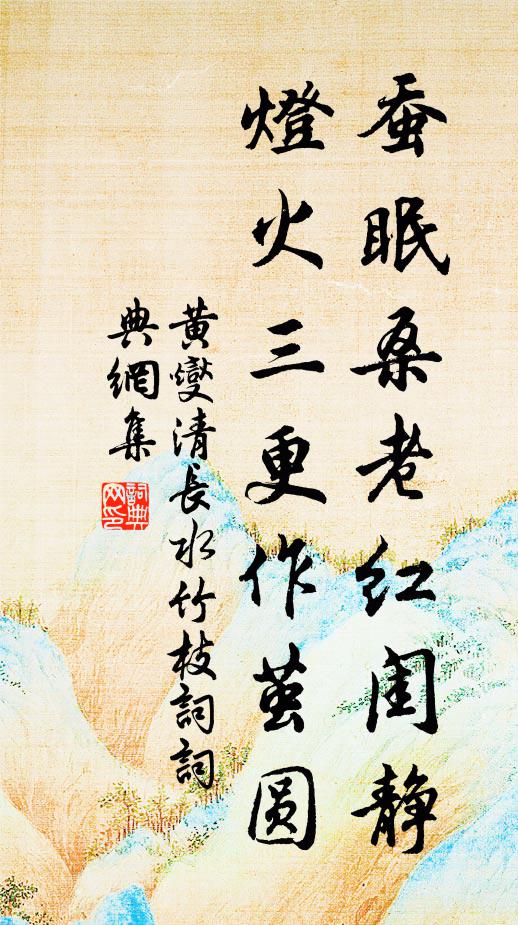 蚕眠桑老红闺静
燈火三更作茧圆
黄燮清長水竹枝詞詞
典網集
詞典
网印